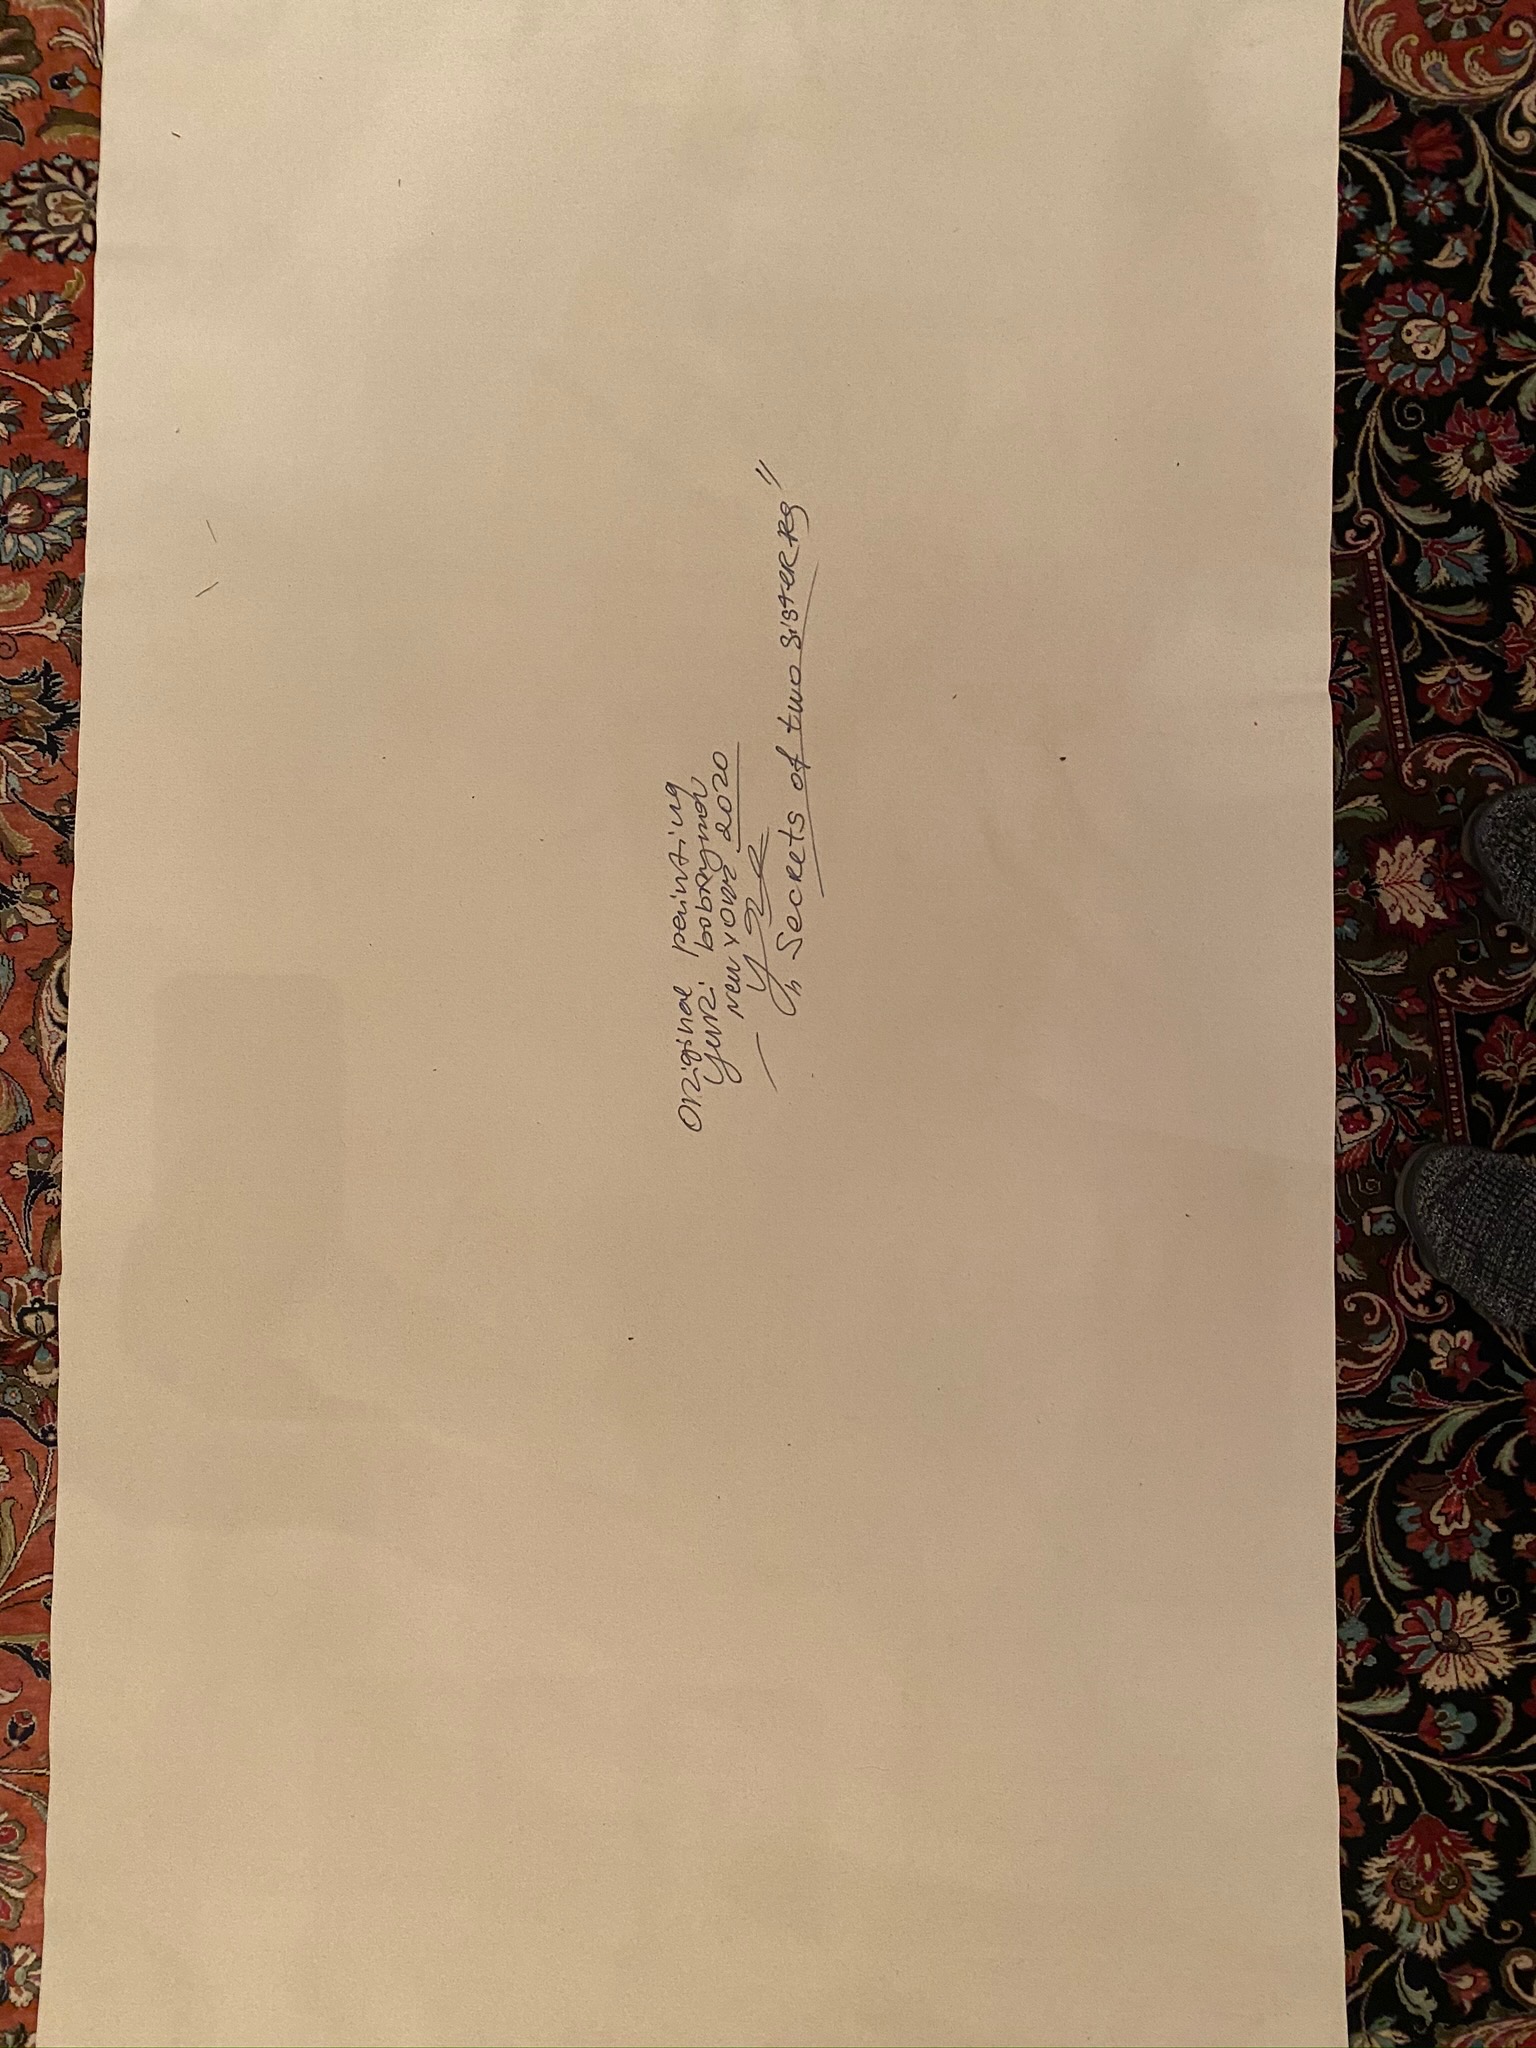 Original peinting
Yuri bobraymov
New York 2020
"Secrets of two sisterrs"